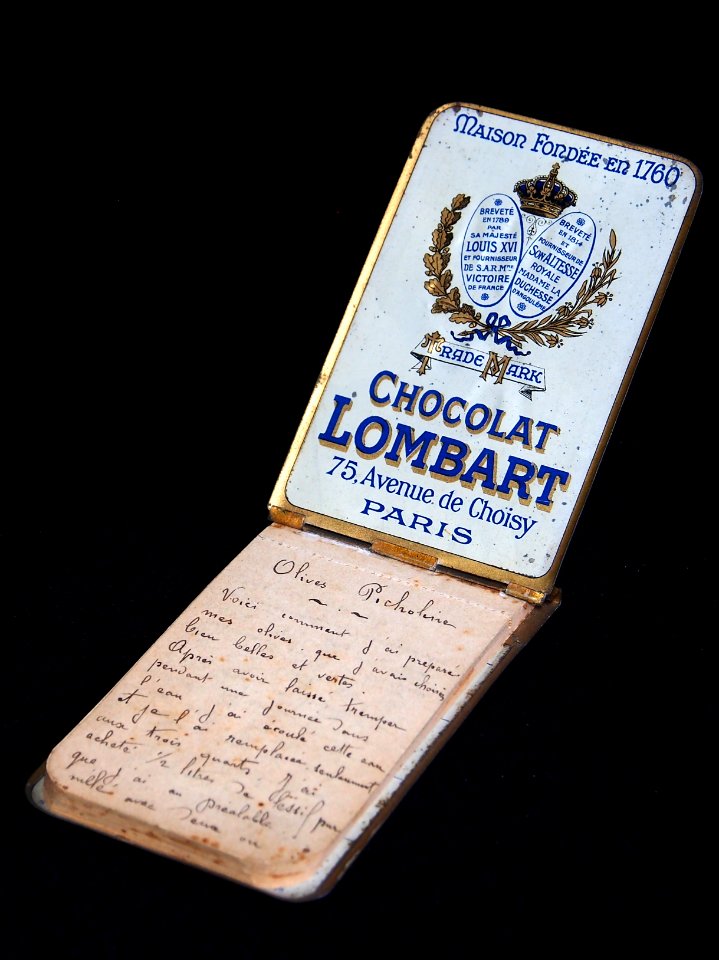 MAISON FONDÉE EN 1760
BREVETÉ
EN 1789
PAR
SA MAJESTÉ
LOUIS XVI
ET FOURNISSEUR
DE S.A.R. Mme
VICTOIRE
DE FRANCE
BREVETÉ
EN 1814
ET
FOURNISSEUR DE
SON ALTESSE
ROYALE
MADAME LA
DUCHESSE
D'ANGOULÊME
TRADE MARK
CHOCOLAT
LOMBART
75, Avenue de Choisy
PARIS
Olives Picholine
Voici comment j'ai préparé
mes olives que j'avais choisies
bien belles et vertes.
Après avoir laissé tremper
pendant une journée dans
l'eau j'ai écoulé cette eau
et je l'ai remplacée seulement
aux trois quarts. J'ai
acheté 1/2 litres de lessif pur
que j'ai au préalable
mêlé avec deux ou